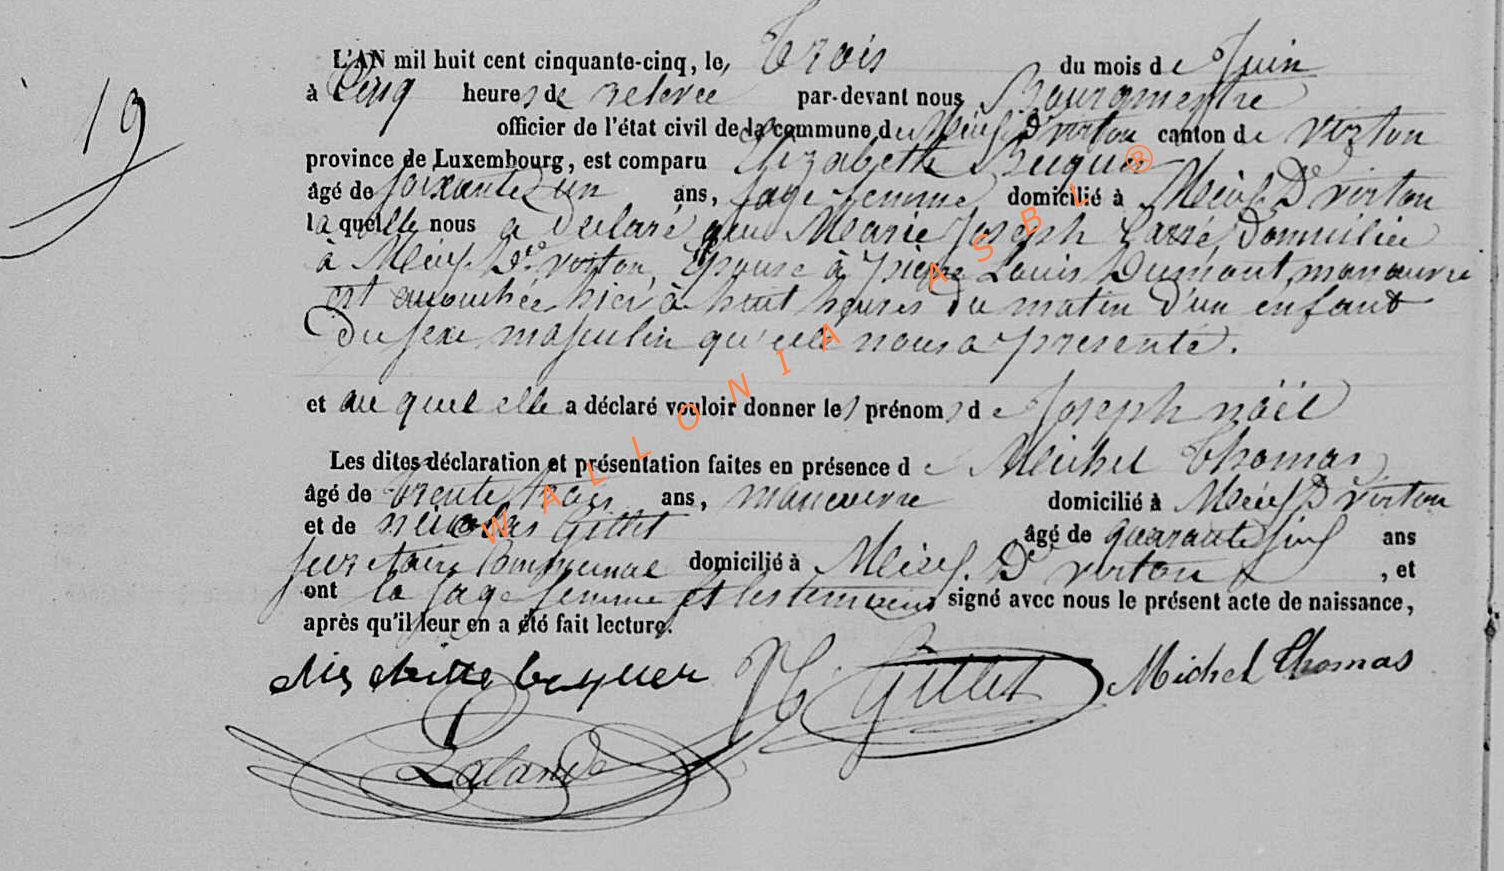 19
L'AN mil huit cent cinquante-cinq, le, Trois du mois de Juin
à Cinq heures de relevée par-devant nous Bourgmestre
officier de l'état civil de la commune de Meix Dt virton canton de virton
province de Luxembourg, est comparu Elizabeth Bequer
âgé de soixante un ans, sage femme domicilié à Meix Dt virton
la quelle nous a déclaré que Marie Joseph Carré, Domiciliée
à Meix Dt virton, Epouse à pierre Louis Dumont, manœuvre
est accouchée hier à huit heures du matin d'un enfant
Du sexe masculin qu'elle nous a présenté.
et au quel elle a déclaré vouloir donner les prénoms de Joseph nöel
Les dites déclaration et présentation faites en présence de Meichel Thomas
âgé de trente trois ans, manœuvre domicilié à Meix Dt virton
et de neicolas Gillet âgé de quarante ans
secretaire Communal domicilié à Meix Dt virton, et
ont la sage femme et les temoins signé avec nous le présent acte de naissance,
après qu'il leur en a été fait lecture.
bequer Gillet Michel Thomas
Lalande
WALLONIA ASBL ®